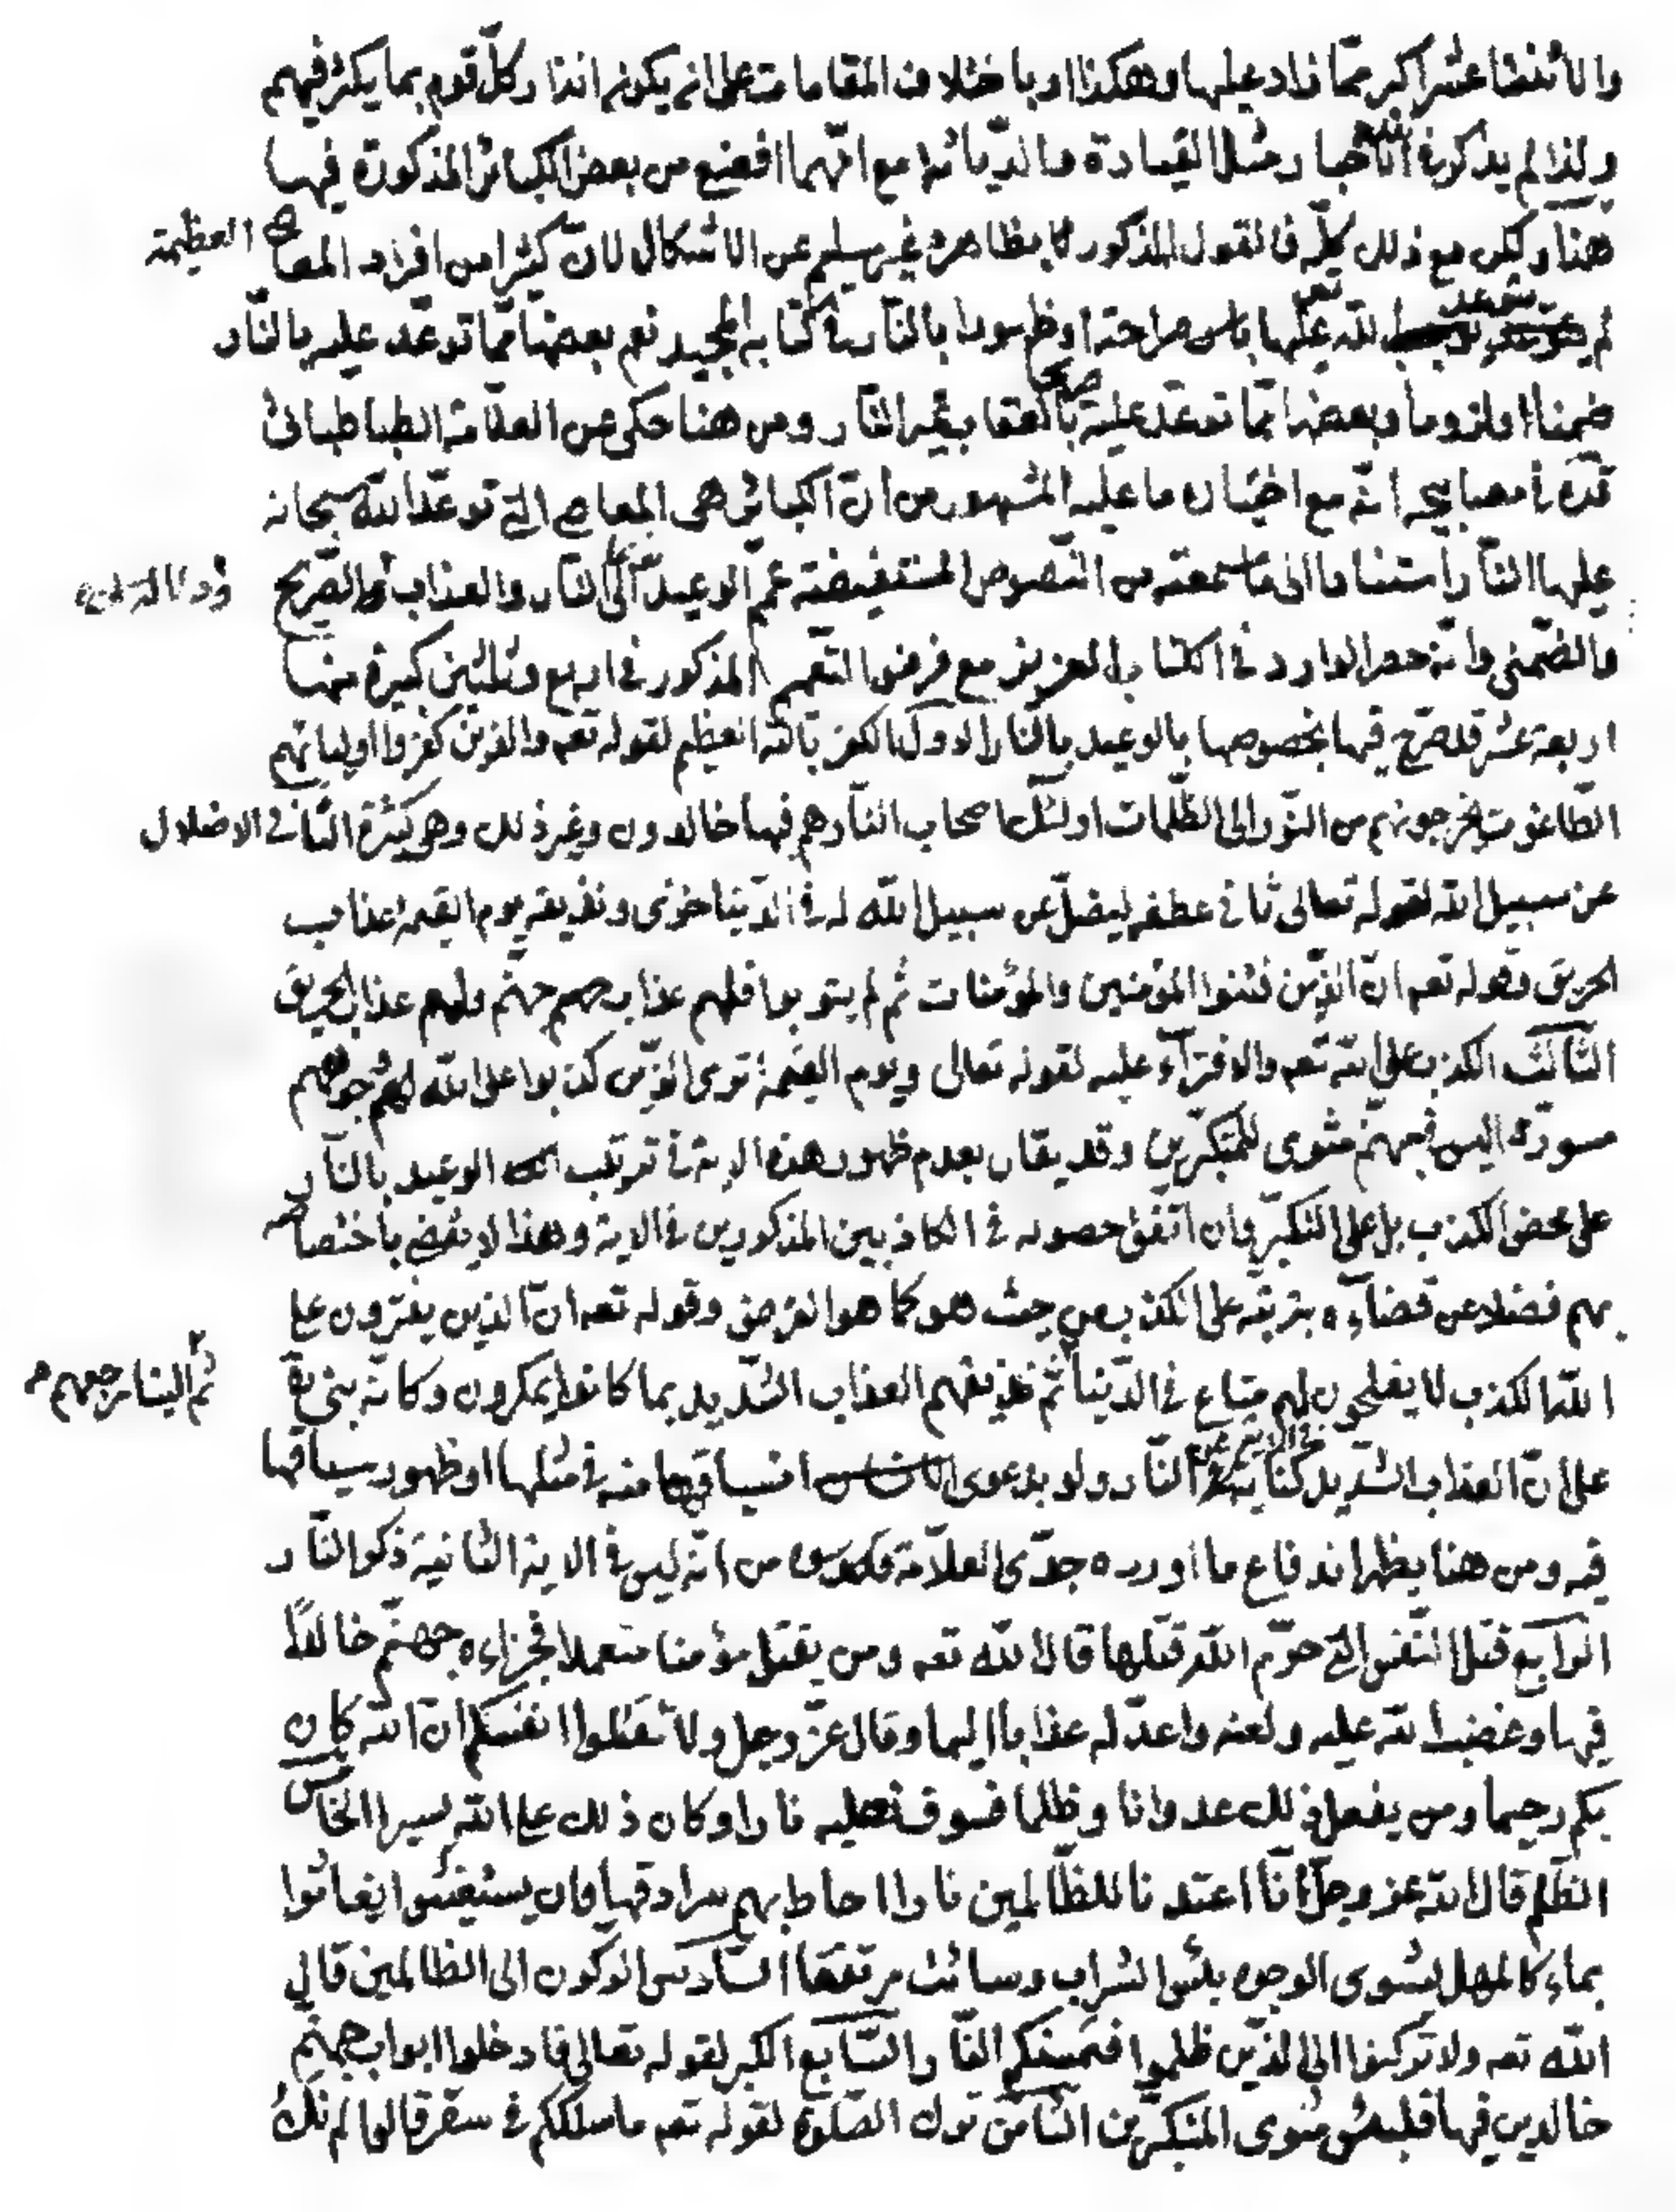 والاثنتا عشر اكبر ممّا زاد عليها وهكذا او باختلاف المقامات على انه يكون انذار كلّ قوم بما يكثر فيهم
ولذا لم يذكر في اخبار مثل القيادة والدّياثة مع انّهما افضع من بعض الكبائر المذكورة فيها
هنا ولكن مع ذلك كلّه فالقول المذكور بظاهره غير سليم عن الاشكال لانّ كثيرا من افراد المعاصي العظيمة
لم يتوعد الله تعه عليها بالنار صراحة او ظهورا بالنّار في كتابه المجيد نعم بعضها ممّا توعّد عليه بالنّار
ضمنا او لزوما وبعضها ممّا توعّد عليه بالعقاب بغير النّار ومن هنا حكى عن العلّامة الطباطبائي
قدّه في مصابيحه انّه مع اختياره ما عليه المشهور من انّ الكبائر هي المعاصي الّتي توعّد الله سبحانه
عليها النّار استنادا الى ما سمعته من النّصوص المستفيضة عمّم الوعيد الى النّار والعذاب والصّريح
والضّمني وانّه حصر الوارد في الكتاب العزيز مع فرض التّعميم المذكور في اربع وثلثين كبيرة منها
اربعة عشر قد صرّح فيها بخصوصها بالوعيد بالنّار الاوّل الكفر بالله العظيم لقوله تعه والّذين كفروا اوليائهم
الطّاغوت يخرجونهم من النّور الى الظّلمات اولئك اصحاب النّار هم فيها خالدون وغير ذلك وهو كثيرة الثّاني الاضلال
عن سبيل الله لقوله تعالى ثاني عطفه ليضلّ عن سبيل الله له في الدّنيا خزي ونذيقه يوم القيمة عذاب
الحريق وقوله تعه انّ الّذين فتنوا المؤمنين والمؤمنات ثم لم يتوبوا فلهم عذاب جهنّم ولهم عذاب الحريق
الثّالث الكذب على الله تعه والافترآء عليه لقوله تعالى ويوم القيمة ترى الّذين كذبوا على الله وجوههم
مسودّة اليس في جهنّم مثوى للمتكبّرين وقد يقال بعدم ظهور هذه الاية في ترتّب الوعيد بالنّار
على محض الكذب بل على التكبّر وان اتّفق حصوله في الكاذبين المذكورين في الاية وهذا لا يقضي باختصاصه
بهم فضلا عن قضآءه بترتّبه على الكذب من حيث هو كما هو الغرض وقوله تعه انّ الّذين يفترون على
الله الكذب لا يفلحون لهم متاع في الدّنيا ثمّ نذيقهم العذاب الشّديد بما كانوا يمكرون وكانّه بنى
ثم الينا مرجعهم
على انّ العذاب الشّديد في الاية كناية عن النّار ولو بدعوى انسياقها منه في مثلها او ظهور سياقها
فيه ومن هنا يظهر اندفاع ما اورده جدّي العلّامة من انّه ليس في الاية الثّانية ذكر النّار
الرّابع قتل النّفس الّتي حرّم الله قتلها قال الله تعه ومن يقتل مؤمنا متعمدا فجزاءه جهنّم خالدًا
فيها وغضب الله عليه ولعنه واعدّ له عذابا اليما وقال عزّ وجل ولا تقتلوا انفسكم انّ الله كان
بكم رحيما ومن يفعل ذلك عدوانا وظلما فسوف نصليه نارا وكان ذلك على الله يسيرا الخامس
الظّلم قال الله عز وجلّ انّا اعتدنا للظّالمين نارا احاط بهم سرادقها وان يستغيثوا يغاثوا
بماء كالمهل يشوى الوجوه بئس الشراب وسائت مرتفقا السّادس الركون الى الظالمين قال
الله تعه ولا تركنوا الى الّذين ظلموا فتمسّكم النّار السّابع الكبر لقوله تعالى فادخلوا ابواب جهنّم
خالدين فيها فلبئس مثوى المتكبّرين الثّامن ترك الصّلوة لقوله تعه ما سلككم في سقر قالوا لم نك